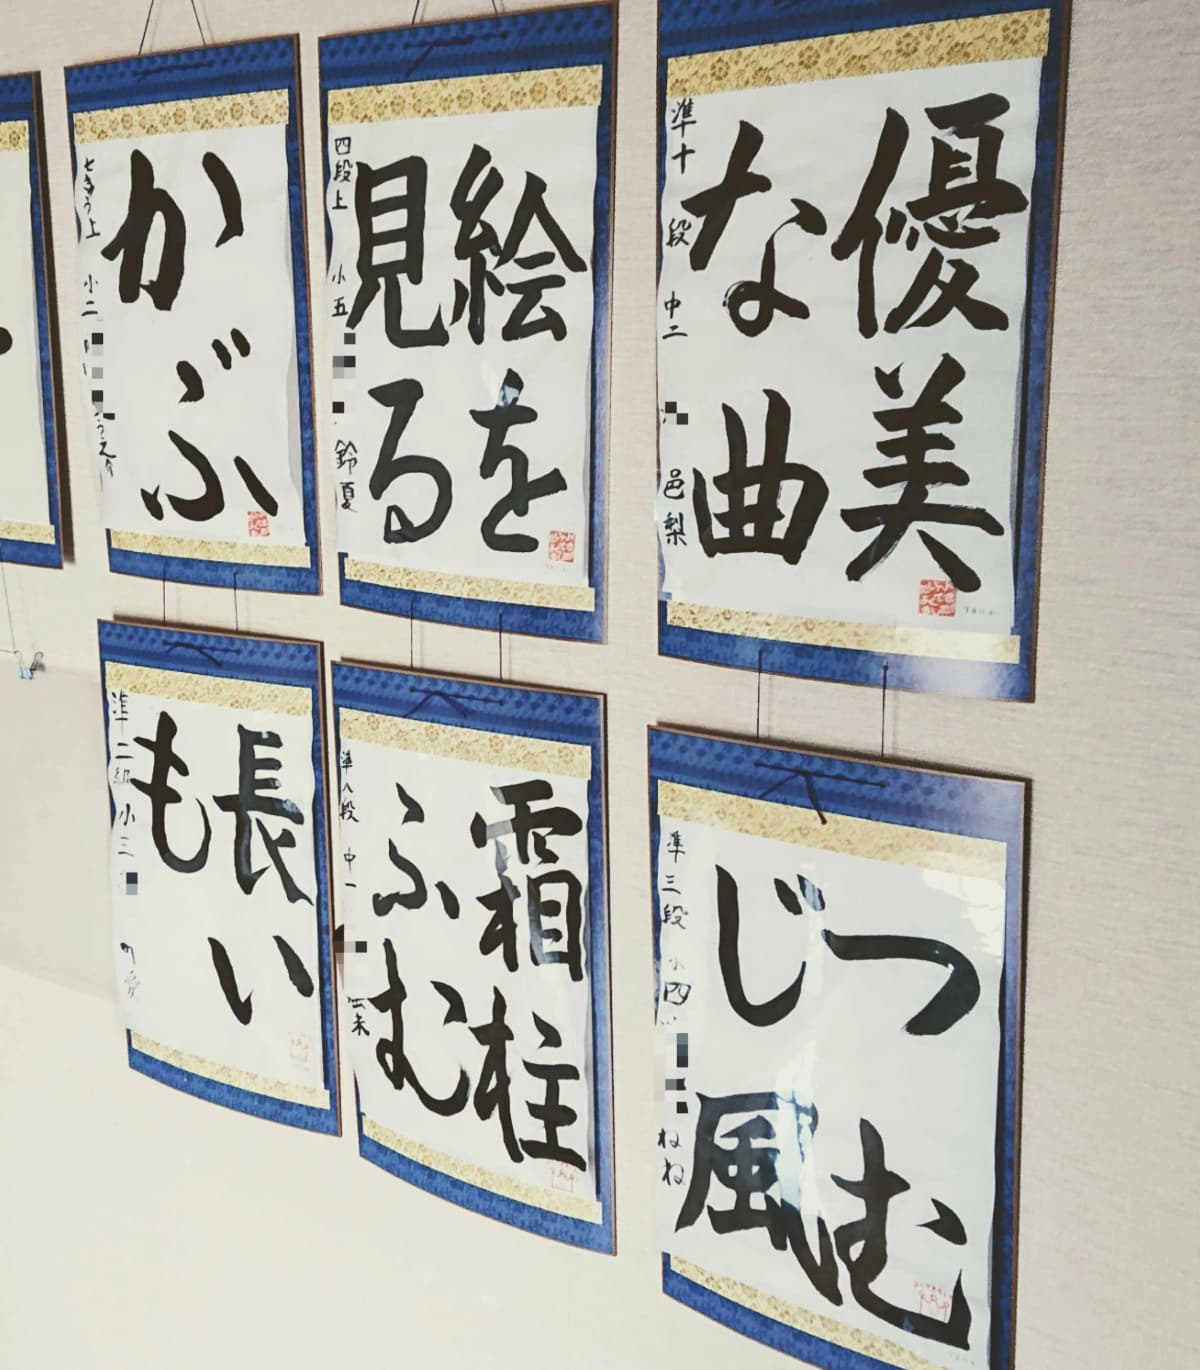 優美
な曲
準十段 中二 邑梨
絵を
見る
四段上 小五 鈴夏
かぶ
七きう上 小二
つむ
じ風
準三段 小四 ねね
霜柱
ふむ
準八段 中一
長い
も
準二級 小三